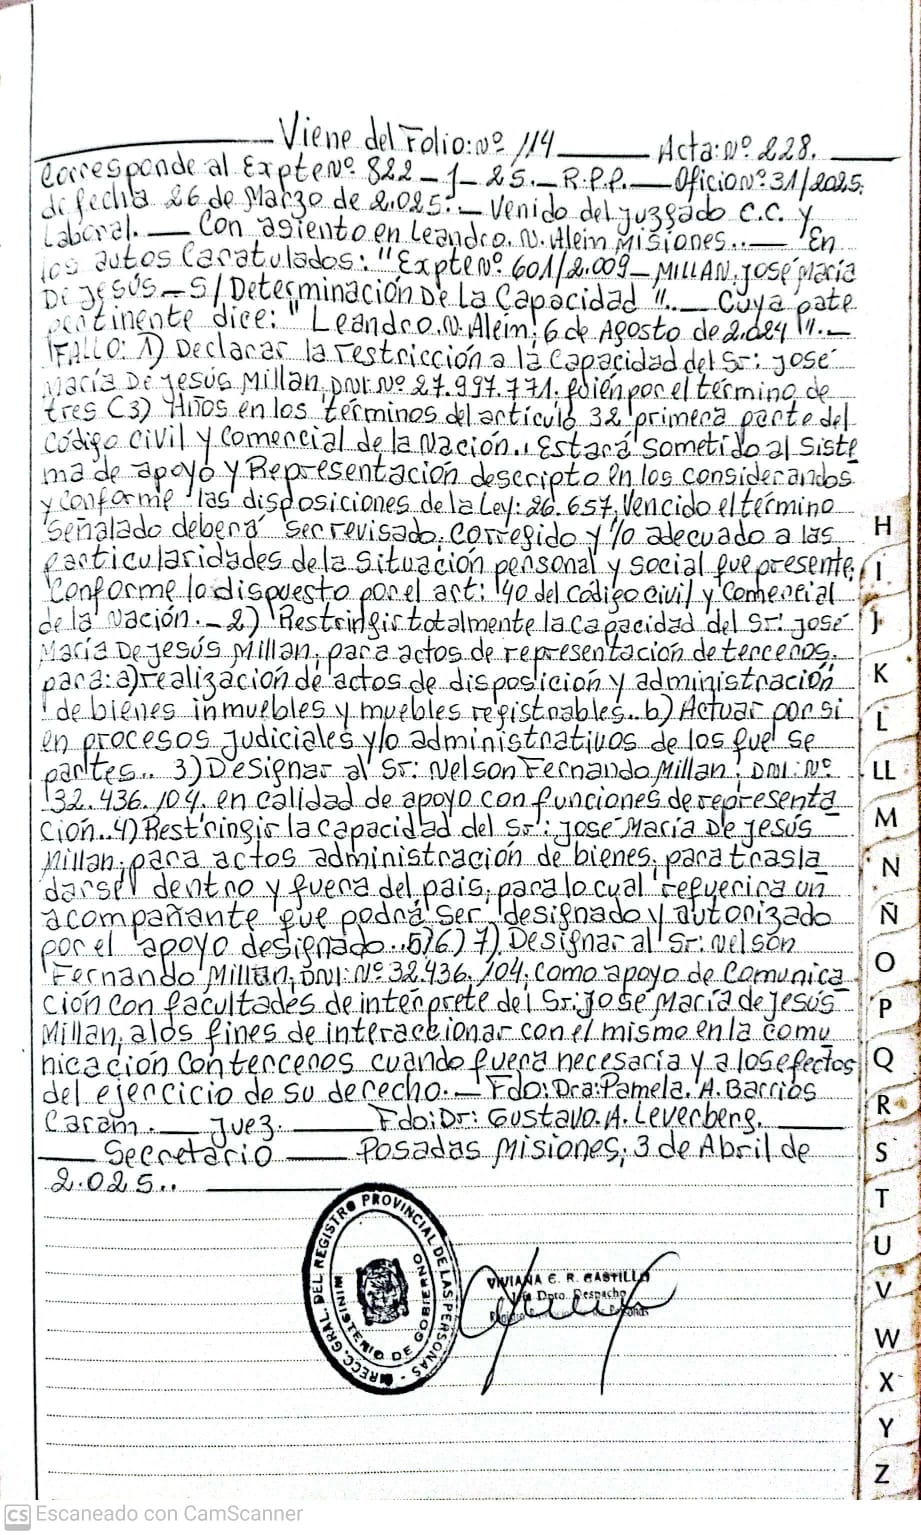 Viene del Folio: Nº 114 Acta: Nº 228.
Corresponde al Expte Nº 822-1-25.- R.P.P. Oficio Nº 31/2025.
de fecha 26 de Marzo de 2.025.- Venido del Juzgado C.C. y
Laboral. Con asiento en Leandro. N. Alem Misiones.. "En
los autos Caratulados: "Expte Nº 601/2.009- MILLAN. José María
De Jesús - S/ Determinación De La Capacidad ".. Cuya pate
pertinente dice: " Leandro. N. Alem; 6 de Agosto de 2.024 ".-
FALLO: 1) Declarar la restricción a la Capacidad del Sr: José
María De Jesús Millan, DNI. Nº 27.997.771. quien por el término de
tres (3) Años en los términos del artículo 32 primera parte del
Código Civil y Comercial de la Nación., Estará Sometido al Siste
ma de apoyo y Representación descripto en los considerandos
y conforme las disposiciones de la Ley: 26.657, Vencido el término
señalado deberá ser revisado, corregido y/o adecuado a las
particularidades de la Situación personal y social que presente,
Conforme lo dispuesto por el art: 40 del Código Civil y Comercial
de la Nación.- 2) Restringir totalmente la Capacidad del Sr: José
María De Jesús Millan, para actos de representación de terceros,
para: a) realización de actos de disposición y administración
de bienes inmuebles y muebles registrables.. b) Actuar por si
en procesos Judiciales y/o administrativos de los que se
partes.. 3) Designar al Sr: Nelson Fernando Millan, DNI: Nº
32.436.104. en calidad de apoyo con funciones de representa
ción.. 4) Restringir la capacidad del Sr: José María De Jesús
Millan, para actos administración de bienes, para trasla
darse dentro y fuera del pais, para lo cual requerira un
acompañante que podrá ser designado y autorizado
por el apoyo designado.. 5) 6) 7) Designar al Sr: Nelson
Fernando Millan, DNI: Nº 32.436.104, como apoyo de Comunica
ción con facultades de interprete del Sr: José María de Jesús
Millan, a los fines de interaccionar con el mismo en la comu
nicación con terceros cuando fuera necesaria y a los efectos
del ejercicio de su derecho.- Fdo: Dra: Pamela. A. Barrios
Caram. Juez. Fdo: Dr: Gustavo. A. Leverberg.
Secretario Posadas Misiones, 3 de Abril de
2.025..
DIRECC. GRAL. DEL REGISTRO PROVINCIAL DE LAS PERSONAS
MINISTERIO DE GOBIERNO
VIVIANA E. R. CASTILLO
Dpto. Despacho
H
I
J
K
L
LL
M
N
Ñ
O
P
Q
R
S
T
U
V
W
X
Y
Z
CS Escaneado con CamScanner